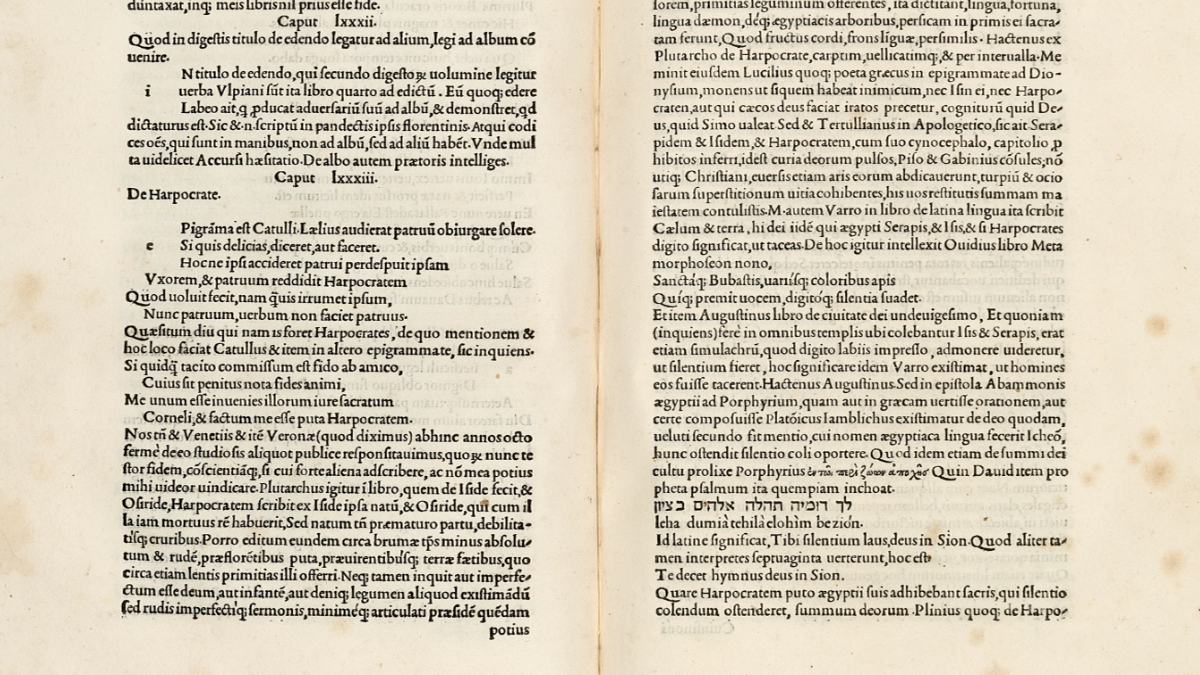 duntaxat,inq; meis libris nil prius esse fide.
Caput lxxxii.
Quod in digestis titulo de edendo legatur ad alium, legi ad album cō
uenire.
N titulo de edendo, qui secundo digestoꝝ uolumine legitur
i uerba Vlpiani sūt ita libro quarto ad edictū. Eū quoq; edere
Labeo ait, q̱ ꝓducat aduersariū suū ad albū, & demonstret, qd
dictaturus est. Sic & .n. scriptū in pandectis ipsis florentinis. Atqui codi
ces oēs, qui sunt in manibus, non ad albū, sed ad aliū habēt. Vnde mul
ta uidelicet Accursi hæsitatio. De albo autem prætoris intelliges.
Caput lxxxiii.
De Harpocrate.
Pigrāma est Catulli. Lælius audierat patruū obiurgare solere.
e Si quis delicias, diceret, aut faceret.
Hoc ne ipsi accideret patrui perdespuit ipsam
Vxorem, & patruum reddidit Harpocratem
Quod uoluit fecit, nam q̄uis irrumet ipsum,
Nunc patruum, uerbum non faciet patruus.
Quæsitum diū qui nam is foret Harpocrates, de quo mentionem &
hoc loco faciat Catullus & item in altero epigrammate, sic inquiens.
Si quidq̄ tacito commissum est fido ab amico,
Cuius sit penitus nota fides animi,
Me unum esse inuenies illorum iure sacratum
Corneli, & factum me esse puta Harpocratem.
Nos tñ & Venetiis & itē Veronæ (quod diximus) abhinc annos octo
fermè deeo studiosis aliquot publice responsitauimus, quoꝝ nunc te
stor fidem, cōscientiāq;, si cui forte aliena adscribere, ac nō mea potius
mihi uideor uindicare. Plutarchus igitur i libro, quem de Iside fecit, &
Osiride, Harpocratem scribit ex Iside ipsa natū, & Osiride, qui cum il
la iam mortuus rē habuerit, Sed natum tñ præmaturo partu, debilita-
tisq; cruribus. Porro editum eundem circa brumæ tp̄s minus absolu-
tum & rudē, præflorētibus puta, præuirentibusq; terræ fætibus, quo
circa etiam lentis primitias illi offerri. Neq; tamen inquit aut imperfe-
ctum esse deum, aut infantē, aut deniq; legumen aliquod existimādū
sed rudis imperfectiq; sermonis, minimeq; articulati præsidē quēdam
potius
lorem, primitias leguminum offerentes, ita dictitant, lingua, fortuna,
lingua dæmon, deq; ægyptiacis arboribus, persicam in primis ei sacra-
tam ferunt, Quod fructus cordi, frons liguæ, persimilis. Hactenus ex
Plutarcho de Harpocrate, carptum, uellicatimq;, & per interualla. Me
minit eiusdem Lucilius quoq; poeta græcus in epigrammate ad Dio-
nysium, monens ut siquem habeat inimicum, nec Isin ei, nec Harpo-
craten, aut qui cæcos deus faciat iratos precetur, cogniturū quid De-
us, quid Simo ualeat Sed & Tertullianus in Apologetico, sic ait. Sera-
pidem & Isidem, & Harpocratem, cum suo cynocephalo, capitolio ꝓ
hibitos inferri, idest curia deorum pulsos, Piso & Gabinius cōsules, nō
utiq; Christiani, euersis etiam aris eorum abdicauerunt, turpiū & ocio
sarum superstitionum uitia cohibentes, his uos restitutis summam ma
iestatem contulistis. M. autem Varro in libro de latina lingua ita scribit
Cælum & terra, hi dei iidē qui ægypti Serapis, & Isis, & si Harpocrates
digito significat, ut taceas. De hoc igitur intellexit Ouidius libro Meta
morphoseon nono,
Sanctaq; Bubastis, uariisq; coloribus apis
Quiq; premit uocem, digitoq; silentia suadet.
Et item Augustinus libro de ciuitate dei undeuigesimo, Et quoniam
(inquiens) ferè in omnibus templis ubi colebantur Isis & Serapis, erat
etiam simulachrū, quod digito labiis impresso, admonere uideretur,
ut silentium fieret, hoc significare idem Varro existimat, ut homines
eos fuisse tacerent. Hactenus Augustinus. Sed in epistola Abammonis
ægyptii ad Porphyrium, quam aut in græcam uertisse orationem, aut
certe composuisse Platōicus Iamblichus existimatur de deo quodam,
ueluti secundo fit mentio, cui nomen ægyptiaca lingua fecerit Icheō,
hunc ostendit silentio coli oportere. Quod idem etiam de summi dei
cultu prolixe Porphyrius ἐν τῶ περὶ ζώων ἀποχῆς Quin Dauid item pro
pheta psalmum ita quempiam inchoat.
לך דומיה תהלה אלהים בציון
leha dumià tehilà elohìm be zion.
Id latine significat, Tibi silentium laus, deus in Sion. Quod aliter ta-
men interpretes septuaginta uerterunt, hoc est
Te decet hymnus deus in Sion.
Quare Harpocratem puto ægyptii suis adhibebant sacris, qui silentio
colendum ostenderet, summum deorum. Plinius quoq; de Harpo-